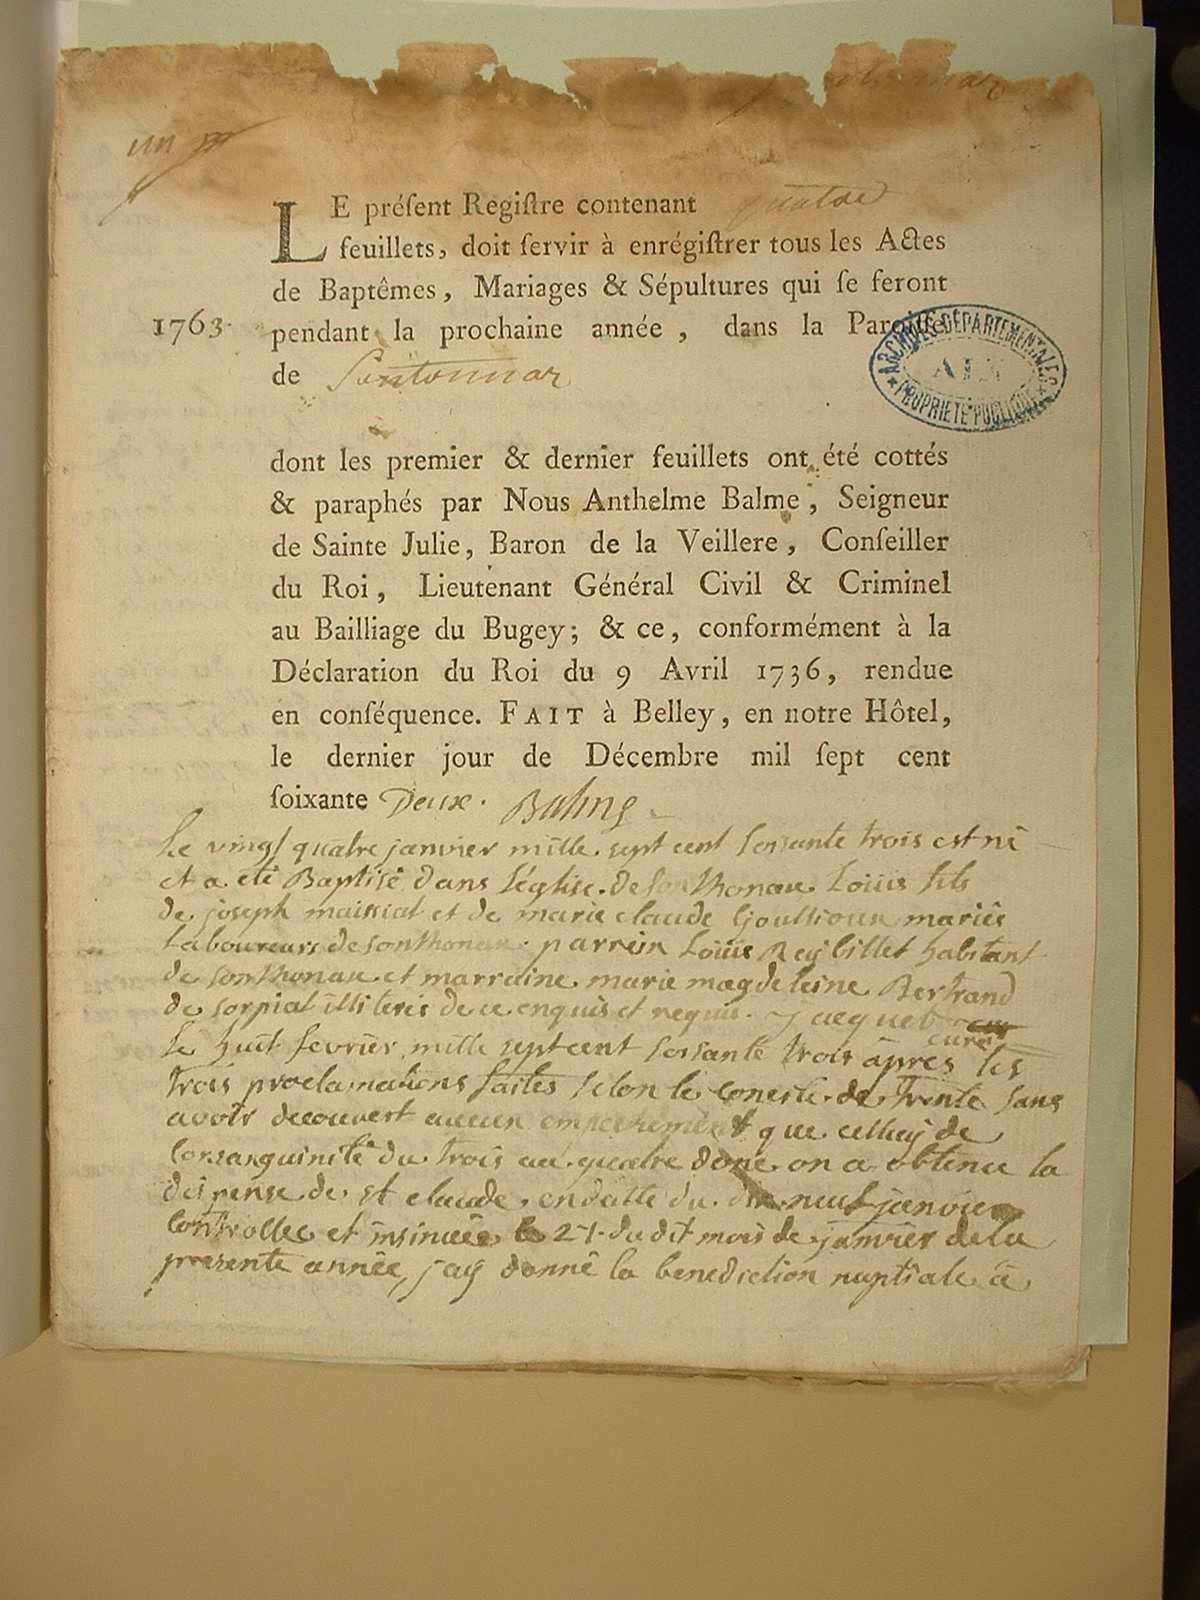 un
LE préſent Regiſtre contenant quatre
feuillets, doit ſervir à enrégiſtrer tous les Actes
de Baptêmes, Mariages & Sépultures qui ſe feront
1763. pendant la prochaine année, dans la Paroiſſe
de Sontonnax
ARCHIVES DÉPARTEMENTALES
AIN
PROPRIÉTÉ PUBLIQUE
dont les premier & dernier feuillets ont été cottés
& paraphés par Nous Anthelme Balme, Seigneur
de Sainte Julie, Baron de la Veillere, Conſeiller
du Roi, Lieutenant Général Civil & Criminel
au Bailliage du Bugey; & ce, conformément à la
Déclaration du Roi du 9 Avril 1736, rendue
en conſéquence. FAIT à Belley, en notre Hôtel,
le dernier jour de Décembre mil ſept cent
ſoixante Deux. Balme
Le vingt quatre janvier mille sept cent soisante trois est né
et a été Baptisé dans l'église de sonthonax Loüis fils
de joseph maissiat et de marie claude Goussioux mariés
Laboureurs de sonthonax. parrein Loüis Reybillet habitant
de sonthonax et marraine marie magdeleine Bertrand
de sorpiat illiterés de ce enquis et requis. Jacquet
curé
Le huit fevrier mille sept cent soisante trois âpres les
trois proclamations faites selon le concile de trente sans
avoir decouvert aucun empechement que celluy de
consanguinité du trois au quatre dont on a obtenu la
dispense de st claude en datte du dix neuf janvier
controllée et insinuée le 27. du dit mois de janvier de la
presente année, jay donné la benediction nuptiale à